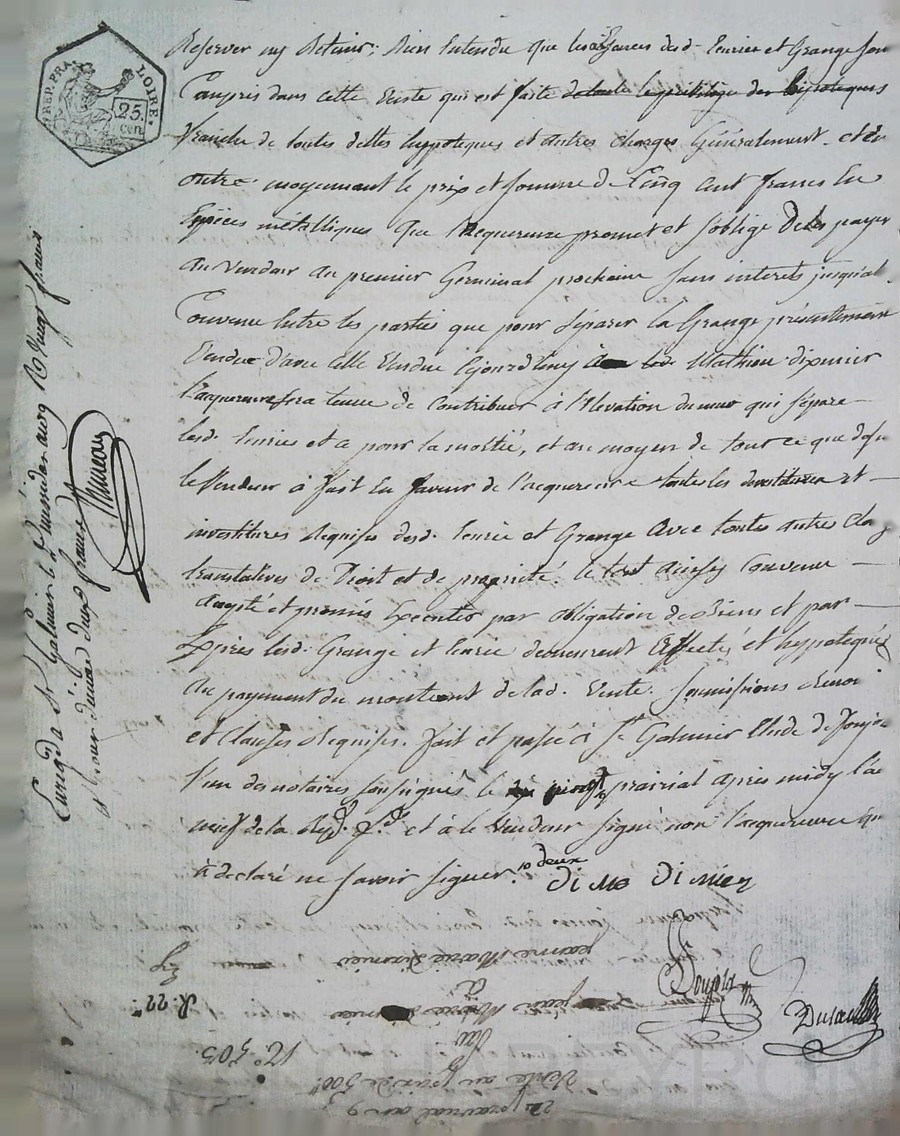 REP. FRA. LOIRE.
25. cen
Reserver ny Retenir: Bien Entendu que les aisances desd. Ecurie et Grange son
Compris dans cette Vente qui est faite de toute le privilege des hipoteques
franche de toutes dettes hypoteques et autres charges Généralement. et en
outre moyennant le prix et somme de Cinq Cent francs En
Espèces métalliques que l'acquereuse promet et s'oblige de les payer
au Vendeur au premier Germinal prochain sans interets jusqu'al.
Convenu Entre les parties que pour séparer la Grange présentement
Vendue d'avec celle Vendue Cejourd'huy à Mathieu dimier
l'acquereuse sera tenue de Contribuer à l'Elevation du mur qui sépare
lesd. Ecuries et ce pour la moitié, et au moyen de tout ce que dessu
le Vendeur à fait En faveur de l'acquereuse toutes les devestitures et
investitures Requises desd. Ecurie et Grange avec toutes autres cla
translatives de Droit et de propriété. le tout ainsy Convenu
accepté et promis Executer par obligation de Biens et par
Exprès lesd. Grange et Ecurie demeurent Effectés et hypotequés
au payement du montant de lad. Vente. soumissions Renon
et Clauses Requises. fait et passé à St. Galmier Etude de Joujon
l'un des notaires soussignés le prairial après midy l'an
neuf de la Rep. f. et à le Vendeur signé non l'acquereuse qui
à déclaré ne savoir signer. 10 deux
Enregé à St Galmier le messidor an 9 R Vingt francs
deux francs
prairial an 9
Vente au prix de 500"
Par
Jean Marie Dimier
à
jeanne Marie Dimier
N° 503.
R. 22"